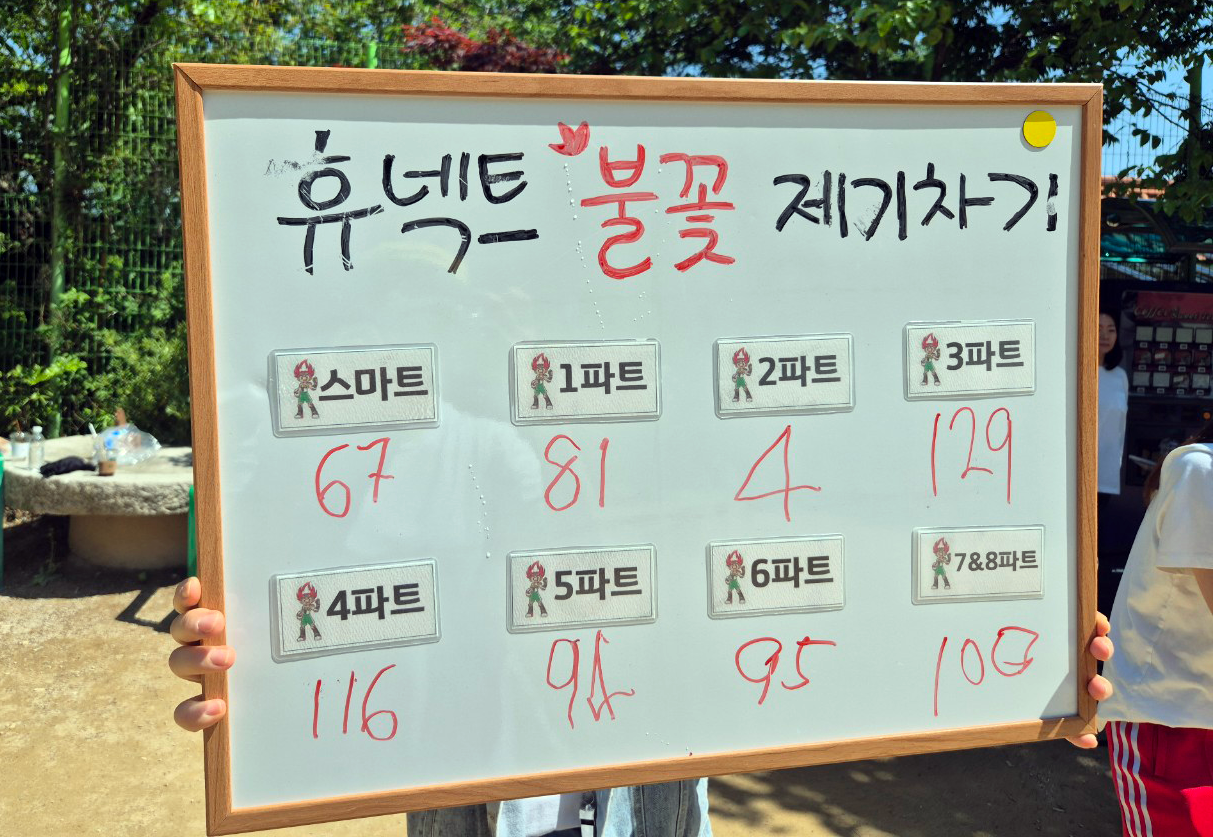 휴넥트 불꽃 제기차기
스마트 1파트 2파트 3파트
67 81 4 129
4파트 5파트 6파트 7&8파트
116 95